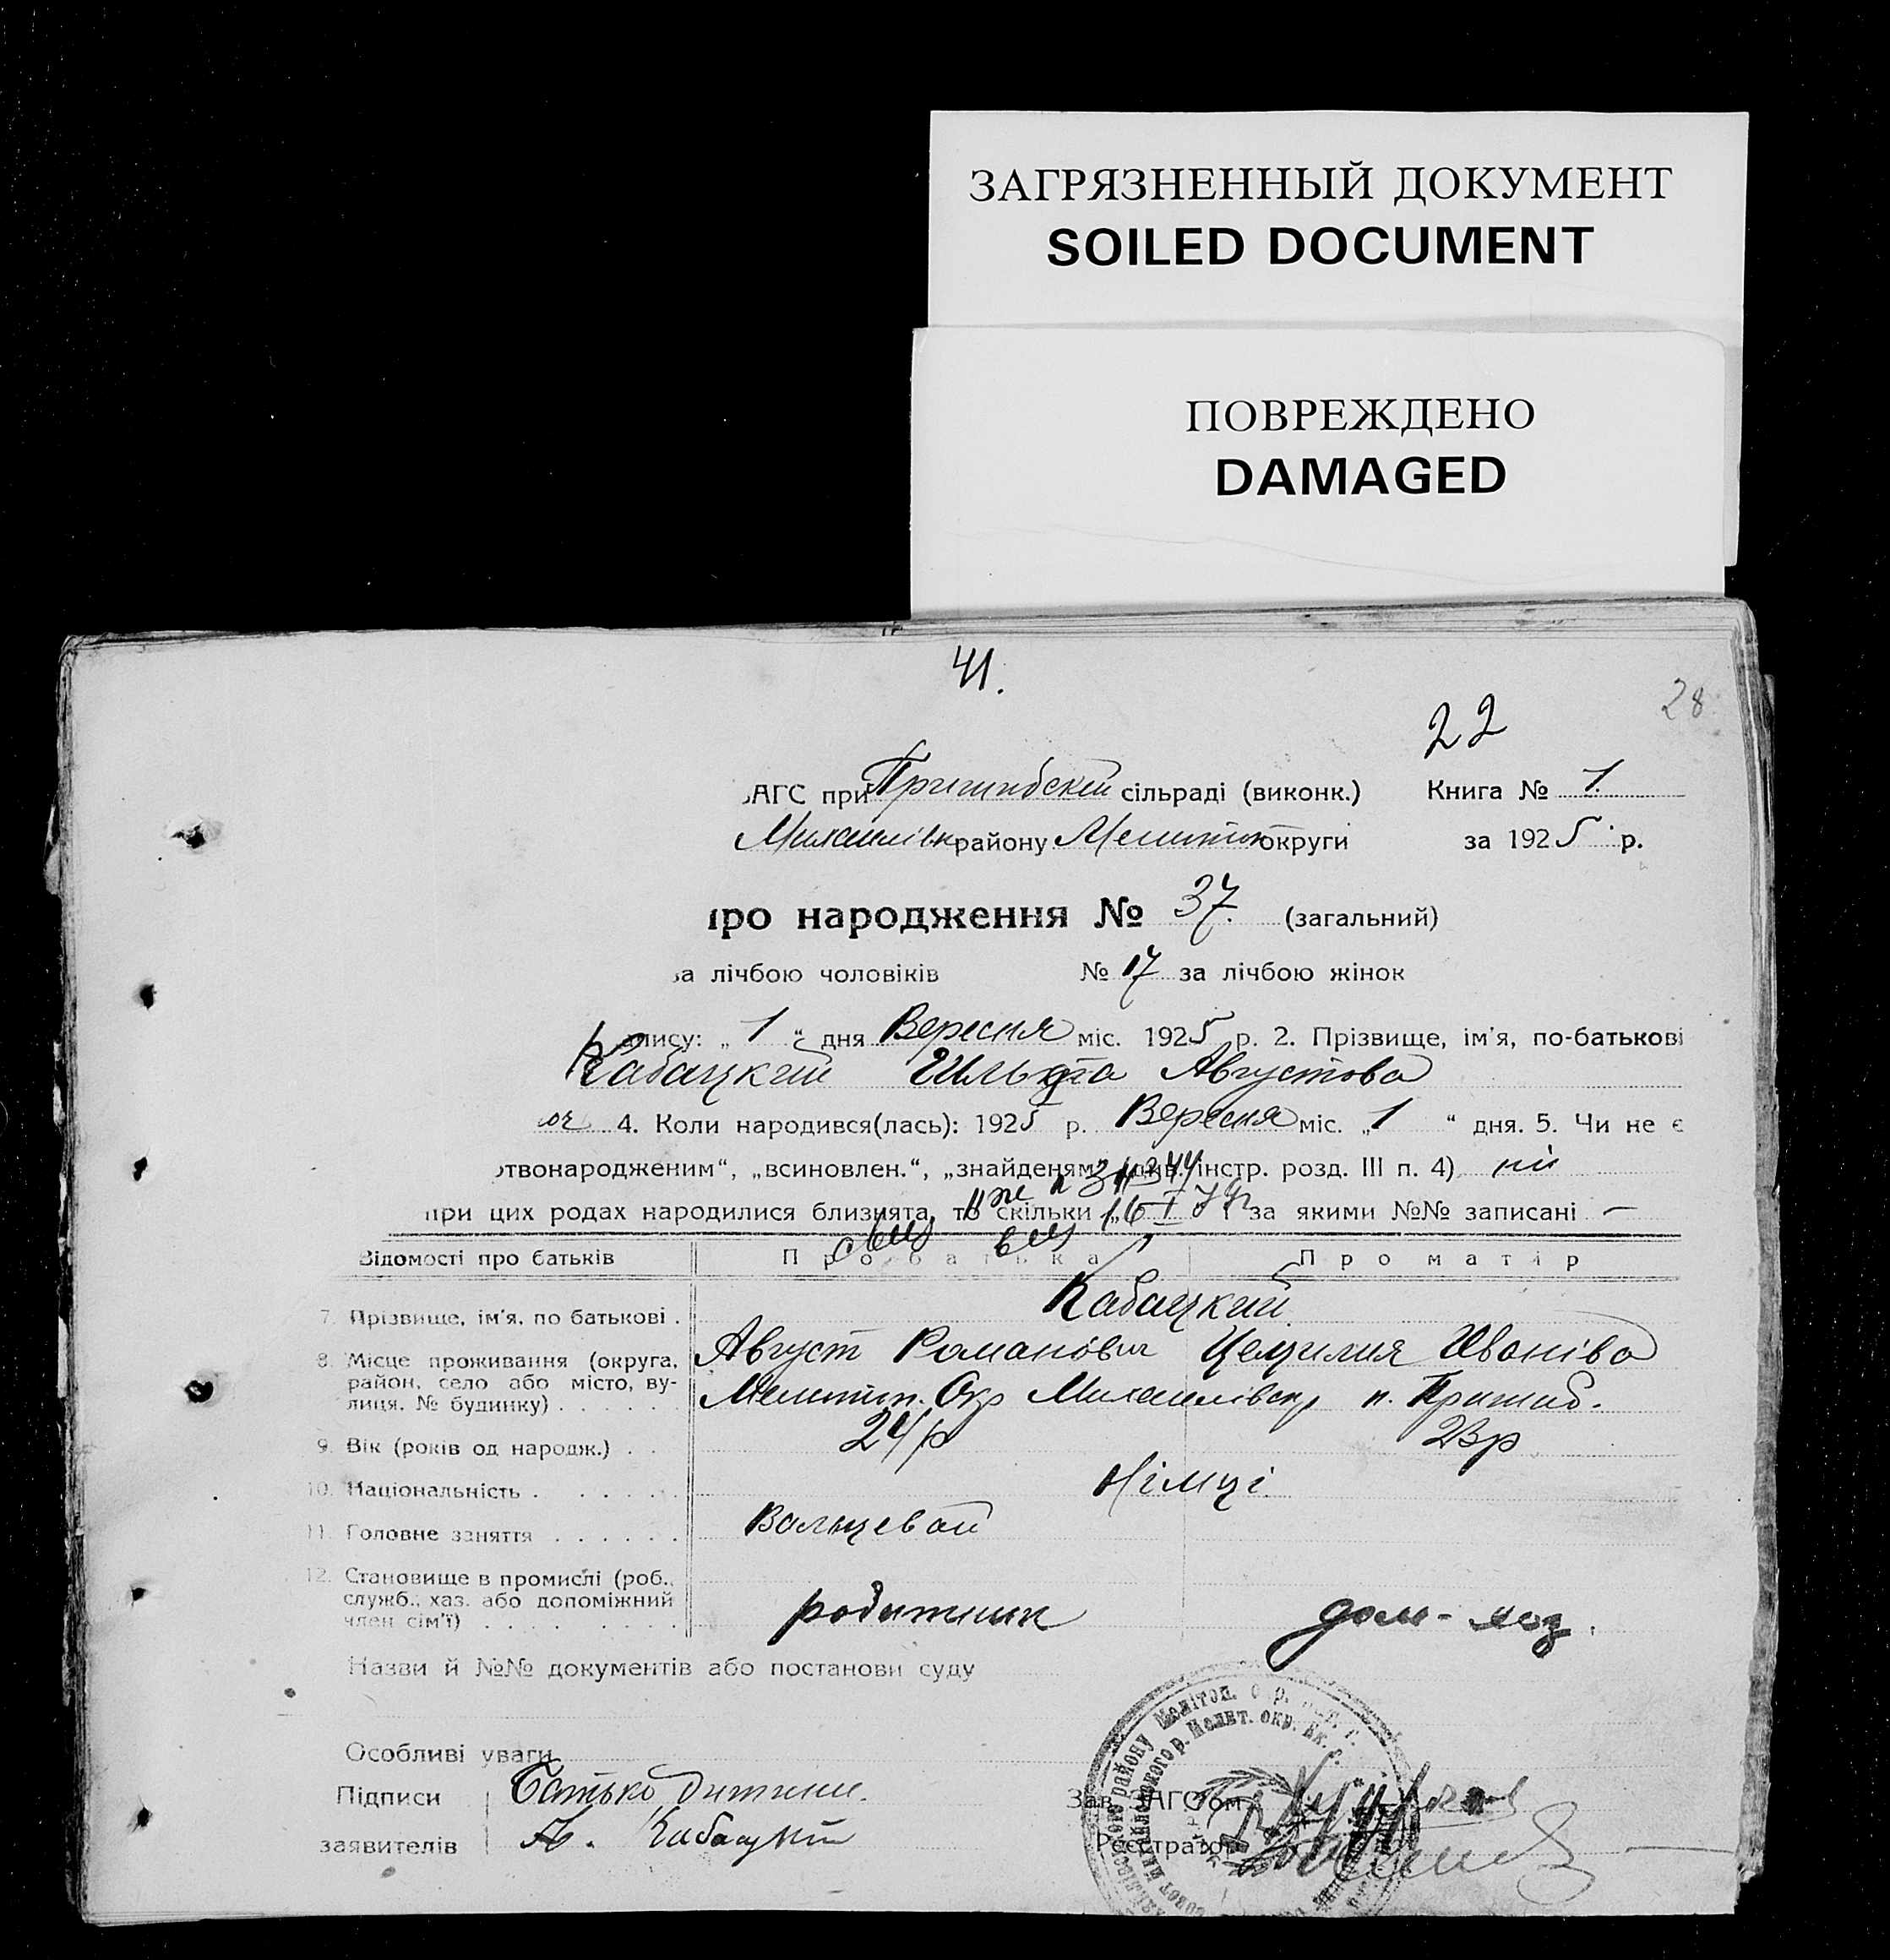 ЗАГРЯЗНЕННЫЙ ДОКУМЕНТ
SOILED DOCUMENT
ПОВРЕЖДЕНО
DAMAGED
41.
28
22
АГС при Пришибскій сільраді (виконк.) Книга № 1.
Михайлівк району Мелитоп округи за 1925 р.
про народження № 37. (загальний)
за лічбою чоловіків № 17 за лічбою жінок
апису: „ 1 “ дня Вересня міс. 1925 р. 2. Прізвище, ім'я, по-батькові
Кабацкий Ильда Августова
оч 4. Коли народився(лась): 1925 р. Вересня міс. „1 “ дня. 5. Чи не є
ртвонародженим“, „всиновлен.“, „знайденям“ (див. інстр. розд. III п. 4) ні
при цих родах народилися близнята, то скільки „ за якими №№ записані —
Відомості про батьків Про батька Про матір
Кабацкий
7. Прізвище, ім'я, по батькові .
Август Романович Цецилия Иванівa
8. Місце проживання (округа,
район, село або місто, ву-
лиця, № будинку) . . . . . . Мелитоп. Окр Михайлівск, п. Пришиб.
9. Вік (років од народж.) . . 24 р 23р
10. Національність . . . . . . Німці
11. Головне заняття . . . . . . Вальцевой
12. Становище в промислі (роб.,
служб., хаз. або допоміжний
член сім'ї) . . . . . . . . робитник дом-хоз.
Назви й №№ документів або постанови суду
Особливі уваги
Підписи Батько дитини.
Зав. ЗАГС'ом
заявителів А. Кабацкий
Реєстратор